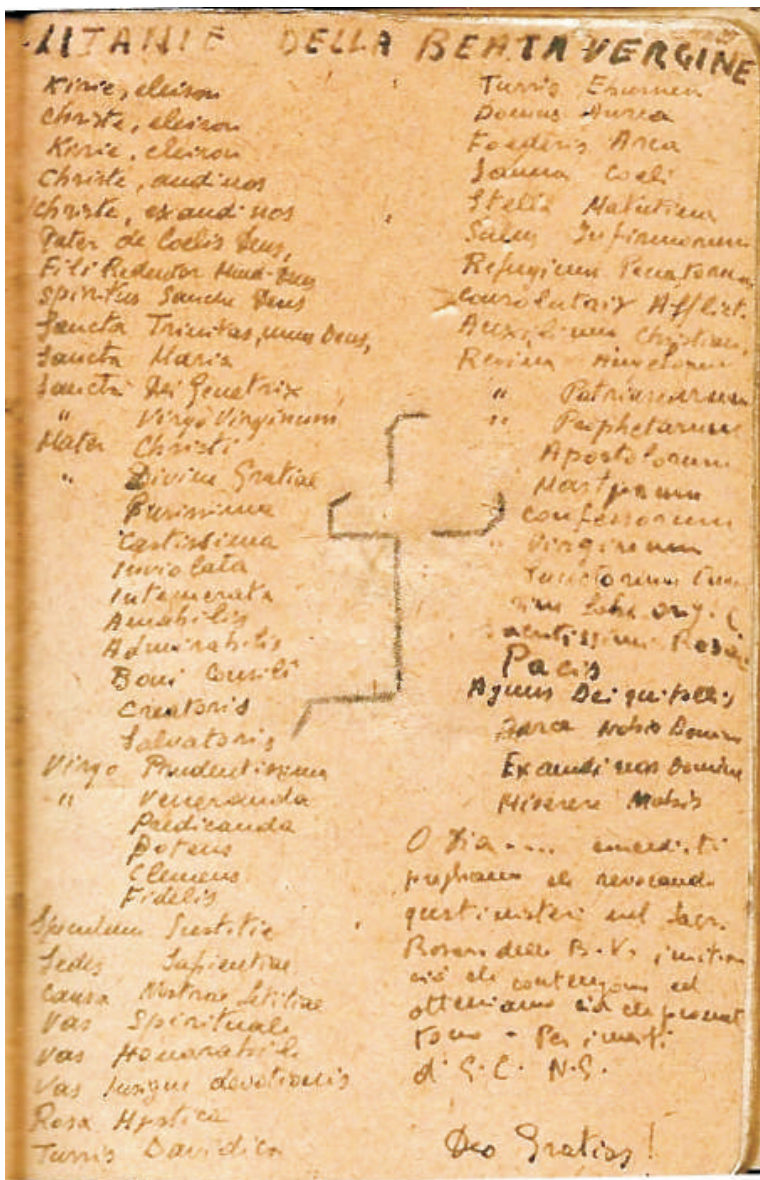 LITANIE DELLA BEATA VERGINE
Kirie, eleison
Christe, eleison
Kirie, eleison
Christe, audi nos
Christe, exaudi nos
Pater de Coelis Deus,
Fili Redentor Mund. Deus
Spiritus Sancte Deus
Sancta Trinitas, unus Deus,
Sancta Maria
Sancta Dei Genetrix
" Virgo Virginum
Mater Christi
" Divine Gratiae
Purissima
Castissima
Inviolata
Intemerata
Amabilis
Admirabilis
Boni Consili
Creatoris
Salvatoris
Virgo Prudentissima
" Veneranda
Predicanda
Potens
Clemens
Fidelis
Speculum Justitie
Sedes Sapientiae
Causa Nostrae Letitiae
Vas Spirituale
Vas Honorabile
Vas Insigne devotionis
Rosa Mystica
Turris Davidica
Turris Eburnea
Domus Aurea
Foederis Arca
Janua Coeli
Stella Matutina
Salus Infirmorum
Refugium Peccatorum
Consolatrix Afflict.
Auxilium Christian.
Regina Angelorum
" Patriarcarum
" Prophetarum
Apostolorum
Martyrum
Confessorum
" Virginum
Sanctorum
sine labe orig.
Pacis
Agnus Dei qui tollis
Parce Nobis Domine
Exaudi nos Domine
Miserere Nobis
O Dio ....
preghiamo che revocando
questi misteri nel Sacr.
Rosario della B.V. imitiamo
ciò che contengono ed
otteniamo ciò che promet
tono - Per i meriti
di G.C. N.S.
Deo Gratias!